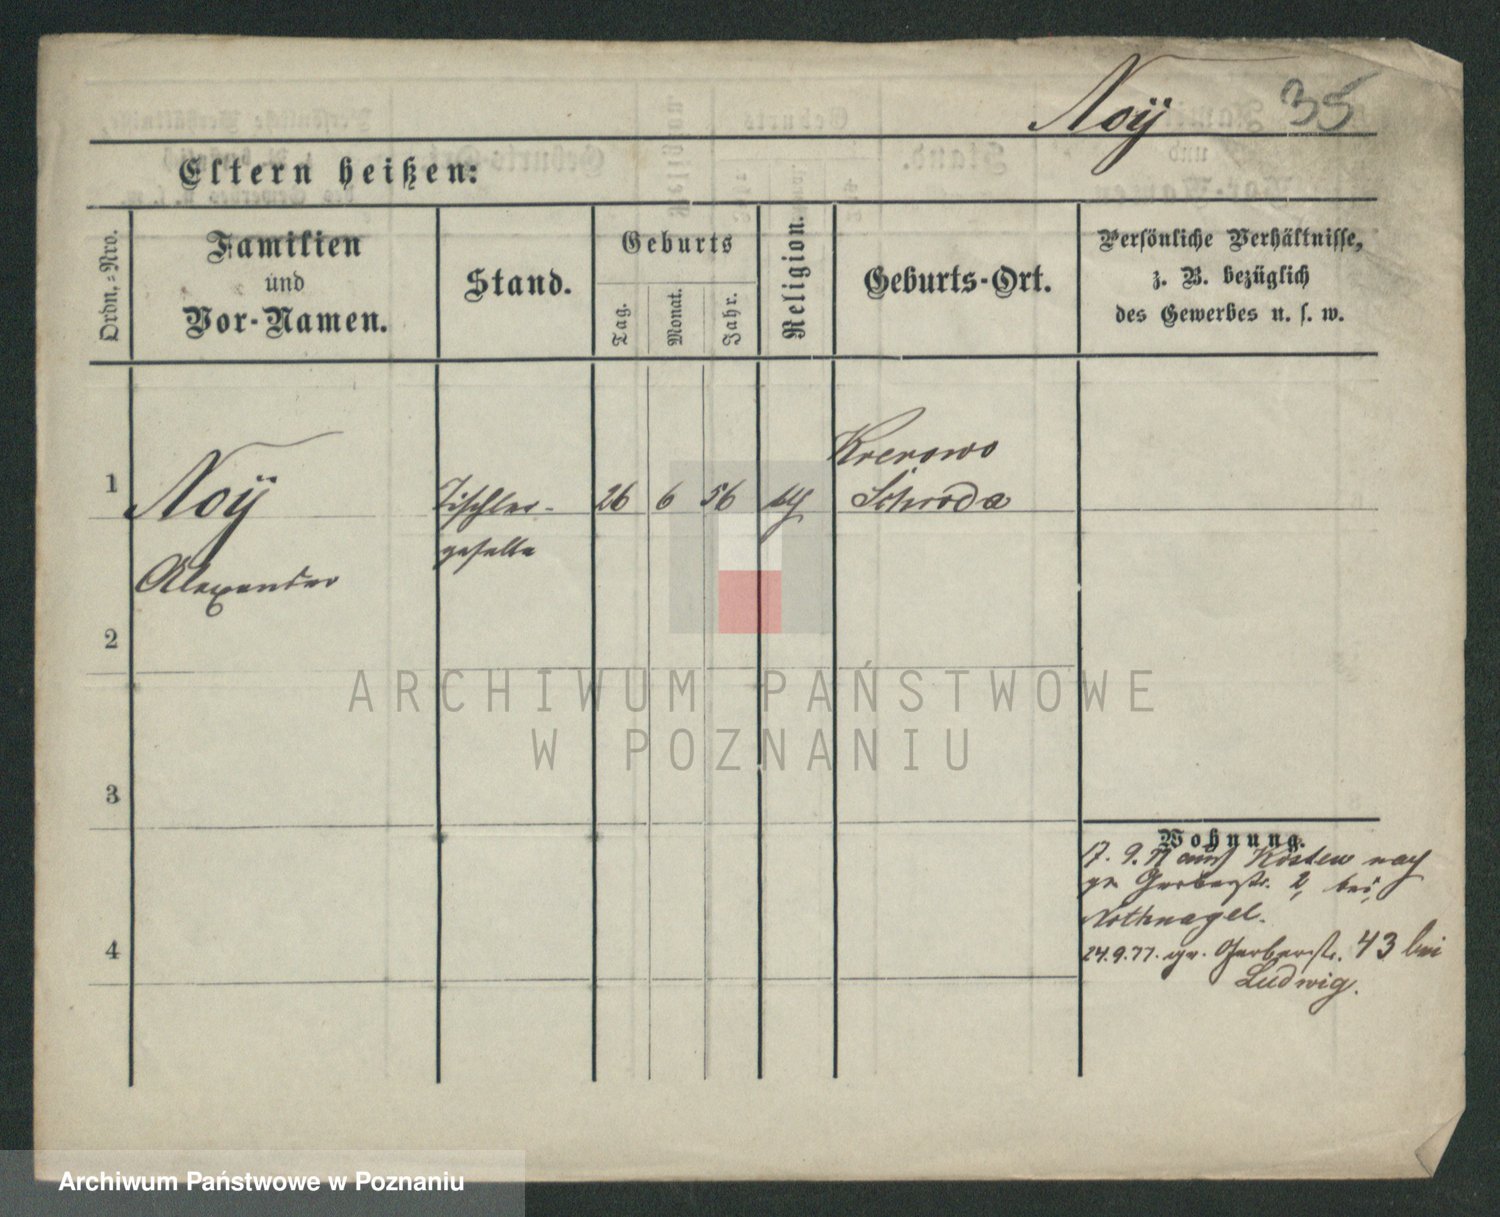 Noÿ 35
Eltern heißen:
Ordn.-Nro.
Familien
und
Vor-Namen.
Stand.
Geburts
Tag.
Monat.
Jahr.
Religion.
Geburts-Ort.
Persönliche Verhältnisse,
z. B. bezüglich
des Gewerbes u. s. w.
1 Noÿ Tischler- 26 6 56 kth Krerowo
Schroda
geselle
Alexander
2
3
4
Wohnung.
17. 9. 77 aus Kosten nach
gr. Gerberstr. 2, bei
Nothnagel.
24.9.77. gr. Gerberstr. 43 bei
Ludwig.
ARCHIWUM PAŃSTWOWE
W POZNANIU
Archiwum Państwowe w Poznaniu